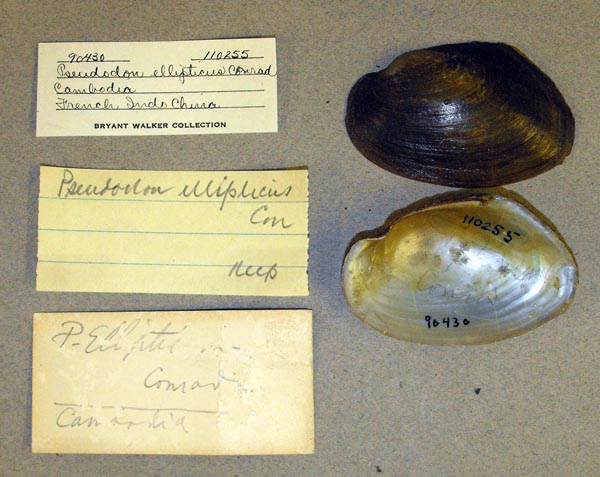 90430 110255
Pseudodon ellipticus Conrad
Cambodia
French Indo China
BRYANT WALKER COLLECTION
Pseudodon ellipticus
Con
Keep
P-Elliptic
Conrad
Cambodia
110255
90430